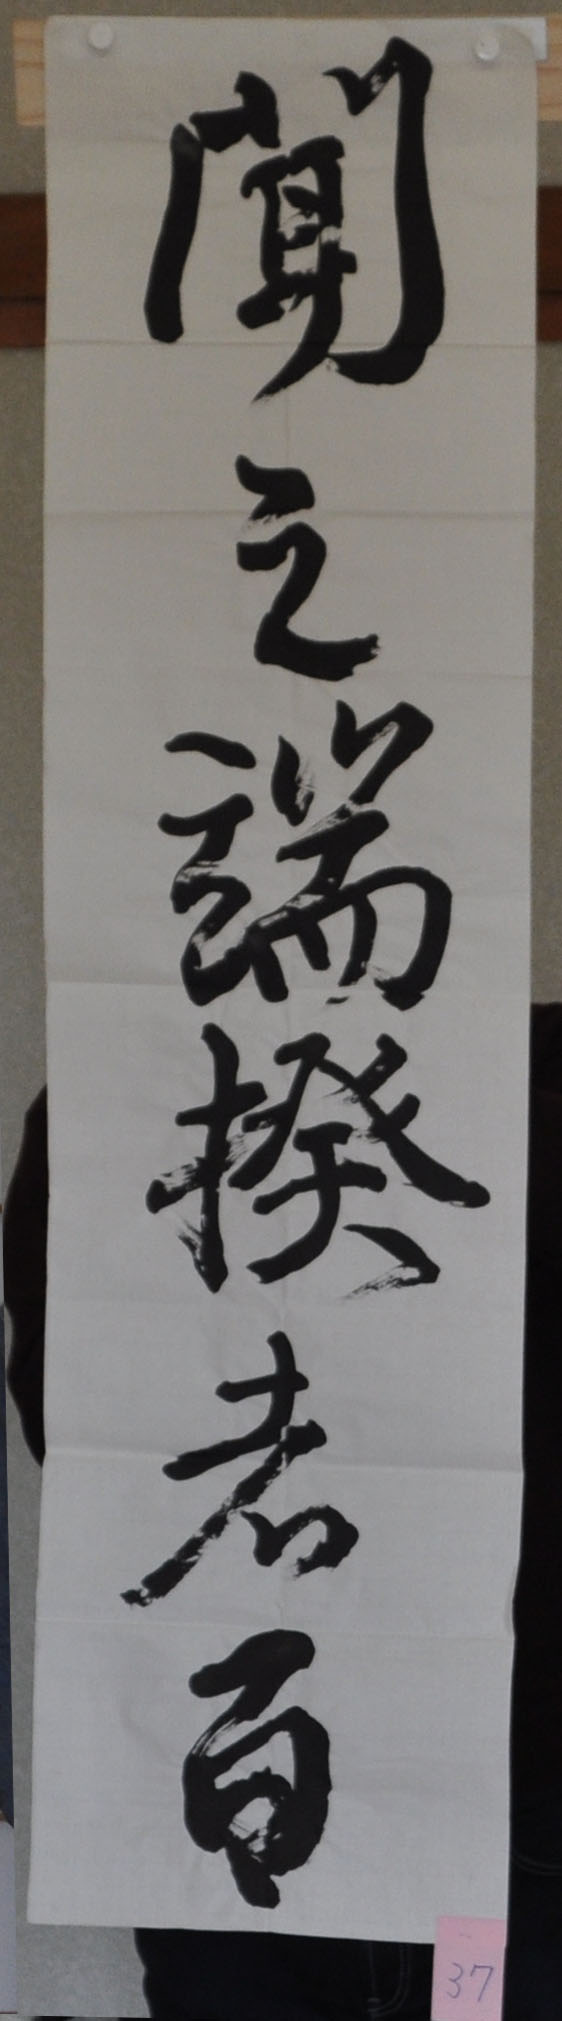 聞之端揆者百
37